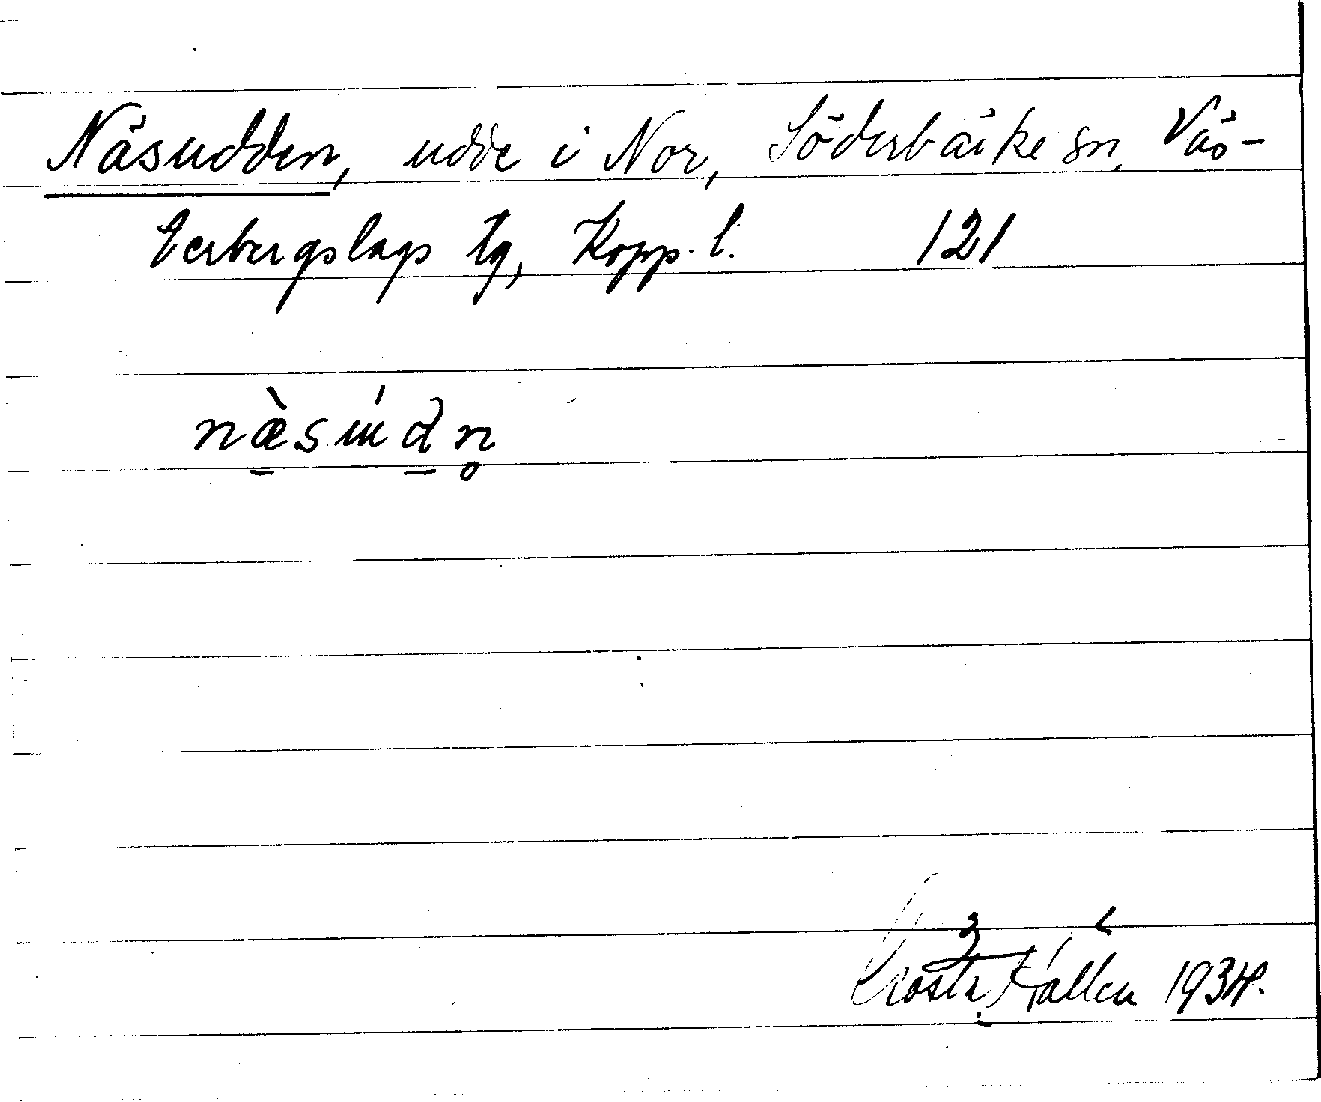 Näsudden, udde i Nor, Söderbärke sn, Väs-
terbergslags tg, Kopp. l. 121
næ̀súdn̥
Källén 1934.